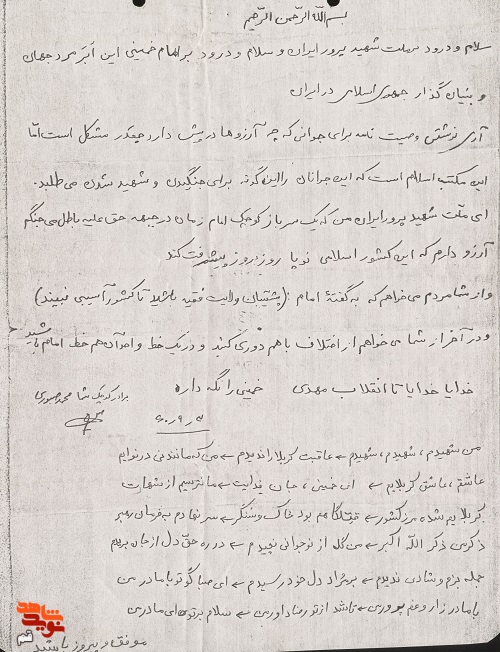 بسم الله الرحمن الرحیم
سلام و درود بر ملت شهید پرور ایران و سلام و درود بر امام خمینی این ابر مرد جهان
و بنیان گذار جمهوری اسلامی در ایران
آری نوشتن وصیت نامه برای جوانی که چه آرزوها در پیش دارد چقدر مشکل است امّا
این مکتب اسلام است که این جوانان را این گونه برای جنگیدن و شهید شدن می طلبد.
ای ملّت شهید پرور ایران من که یک سرباز کوچک امام زمان در جبهه حق علیه باطل می جنگم
آرزو دارم که این کشور اسلامی نوپا روز بروز پیشرفت کند
و از شما مردم می خواهم که به گفتهٔ امام: (پشتیبان ولایت فقیه باشید تا کشور آسیبی نبیند)
و در آخر از شما می خواهم از اختلاف با هم دوری کنید و در یک خط واحد آن هم خط امام باشید
خدایا خدایا تا انقلاب مهدی خمینی را نگه داره
برادر کوچک شما محمد صبوری
من شهیدم، شهیدم، شهیدم عاقبت کربلا را ندیدم من که ماندنی در نوایم
عاشق، عاشق کربلایم ای خمینی، جان فدایت ما نترسیم از شهادت
کربلایم شده مرز کشور قتلگاهم بود خاک و سنگر سر نهادم به فرمان رهبر
ذکر من ذکر الله اکبر من گل از نوجوانی نچیدم در ره حق دل از جان بریدم
جمله بزم و شادی ندیدم بر مراد دل خود رسیدم ای صبا گو تو با مادر من
با مادر زار و غم پرور باشد از تو رضا داور من سلام بر تو ای مادر
موفق و پیروز باشید
شاهد
نوید
قم